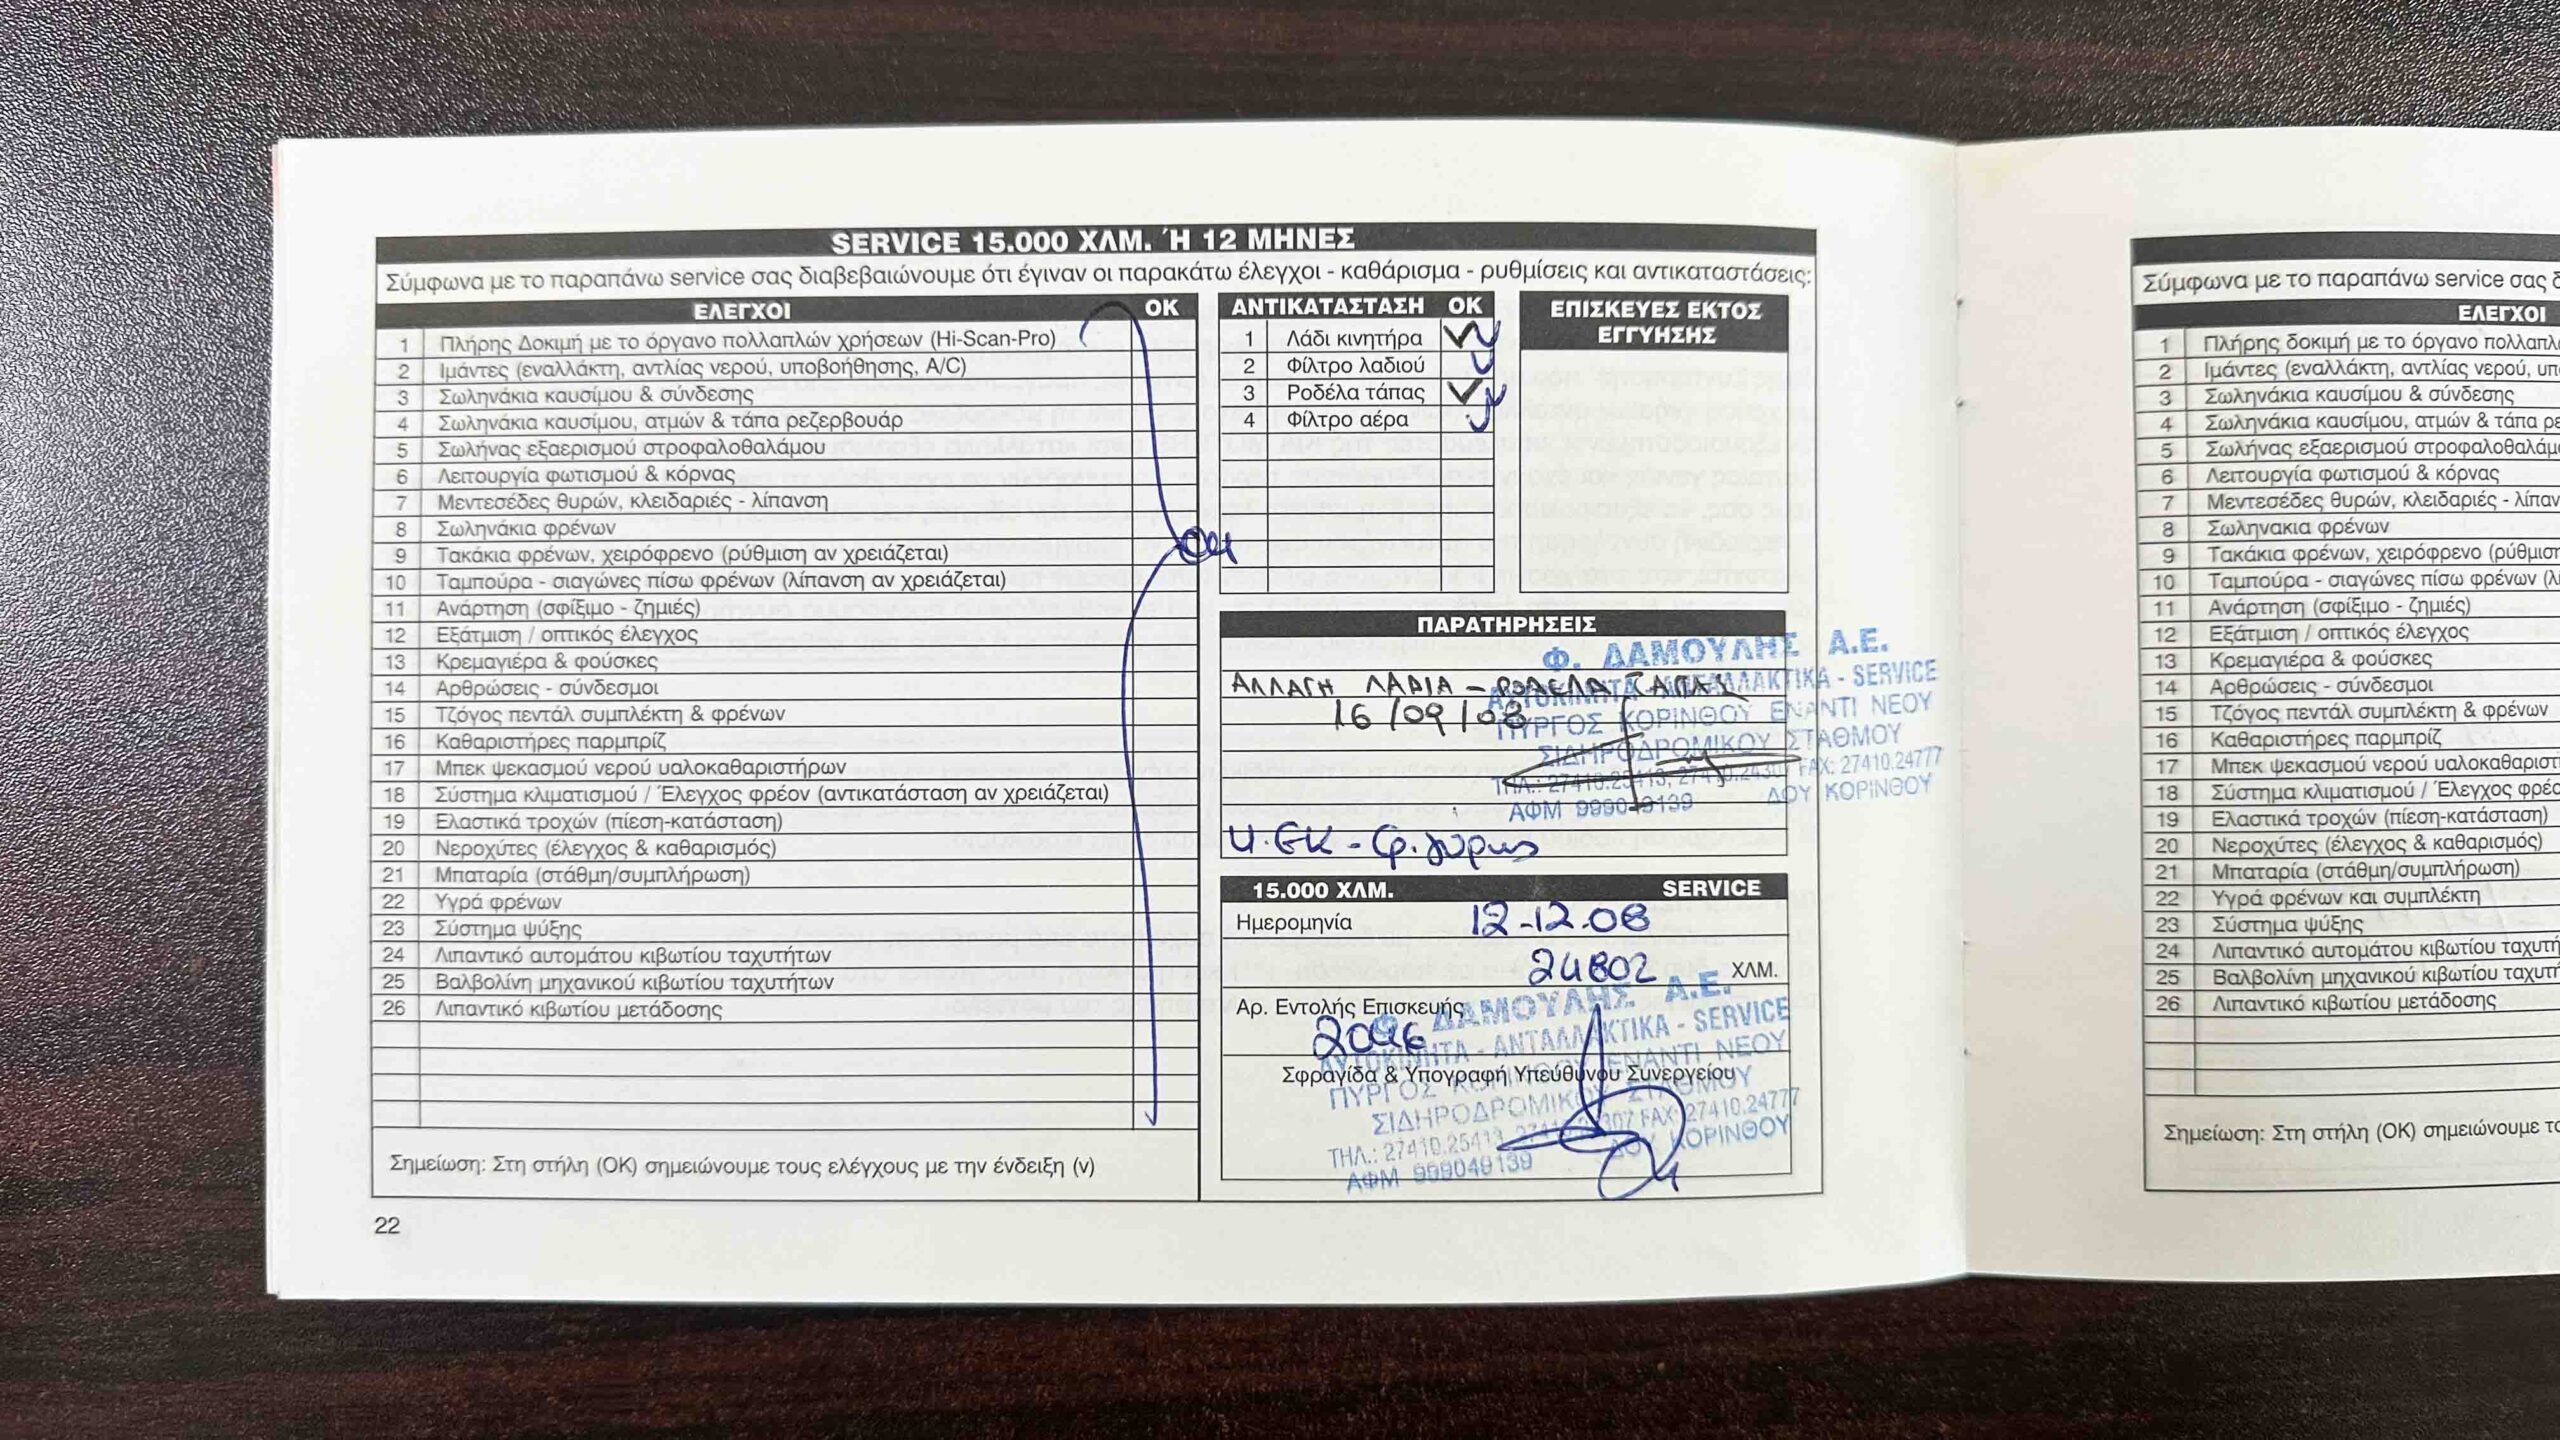 SERVICE 15.000 ΧΛΜ. Ή 12 ΜΗΝΕΣ
Σύμφωνα με το παραπάνω service σας διαβεβαιώνουμε ότι έγιναν οι παρακάτω έλεγχοι - καθάρισμα - ρυθμίσεις και αντικαταστάσεις:
ΕΛΕΓΧΟΙ OK
1 Πλήρης Δοκιμή με το όργανο πολλαπλών χρήσεων (Hi-Scan-Pro)
2 Ιμάντες (εναλλάκτη, αντλίας νερού, υποβοήθησης, A/C)
3 Σωληνάκια καυσίμου & σύνδεσης
4 Σωληνάκια καυσίμου, ατμών & τάπα ρεζερβουάρ
5 Σωλήνας εξαερισμού στροφαλοθαλάμου
6 Λειτουργία φωτισμού & κόρνας
7 Μεντεσέδες θυρών, κλειδαριές - λίπανση
8 Σωληνάκια φρένων
9 Τακάκια φρένων, χειρόφρενο (ρύθμιση αν χρειάζεται)
10 Ταμπούρα - σιαγώνες πίσω φρένων (λίπανση αν χρειάζεται)
11 Ανάρτηση (σφίξιμο - ζημιές)
12 Εξάτμιση / οπτικός έλεγχος
13 Κρεμαγιέρα & φούσκες
14 Αρθρώσεις - σύνδεσμοι
15 Τζόγος πεντάλ συμπλέκτη & φρένων
16 Καθαριστήρες παρμπρίζ
17 Μπεκ ψεκασμού νερού υαλοκαθαριστήρων
18 Σύστημα κλιματισμού / Έλεγχος φρέον (αντικατάσταση αν χρειάζεται)
19 Ελαστικά τροχών (πίεση-κατάσταση)
20 Νεροχύτες (έλεγχος & καθαρισμός)
21 Μπαταρία (στάθμη/συμπλήρωση)
22 Υγρά φρένων
23 Σύστημα ψύξης
24 Λιπαντικό αυτομάτου κιβωτίου ταχυτήτων
25 Βαλβολίνη μηχανικού κιβωτίου ταχυτήτων
26 Λιπαντικό κιβωτίου μετάδοσης
Σημείωση: Στη στήλη (OK) σημειώνουμε τους ελέγχους με την ένδειξη (v)
22
ΑΝΤΙΚΑΤΑΣΤΑΣΗ OK
1 Λάδι κινητήρα
2 Φίλτρο λαδιού
3 Ροδέλα τάπας
4 Φίλτρο αέρα
ΕΠΙΣΚΕΥΕΣ ΕΚΤΟΣ
ΕΓΓΥΗΣΗΣ
ΠΑΡΑΤΗΡΗΣΕΙΣ
ΑΛΛΑΓΗ ΛΑΔΙΑ - ΡΟΔΕΛΑ ΤΑΠΑΣ
16/09/08
Φ. ΔΑΜΟΥΛΗΣ Α.Ε.
ΑΥΤΟΚΙΝΗΤΑ - ΑΝΤΑΛΛΑΚΤΙΚΑ - SERVICE
ΠΥΡΓΟΣ ΚΟΡΙΝΘΟΥ ΕΝΑΝΤΙ ΝΕΟΥ
ΣΙΔΗΡΟΔΡΟΜΙΚΟΥ ΣΤΑΘΜΟΥ
ΤΗΛ.: 27410.25413, 27410.24307 FAX: 27410.24777
ΑΦΜ 999049139 ΔΟΥ ΚΟΡΙΝΘΟΥ
15.000 ΧΛΜ. SERVICE
Ημερομηνία 12-12-08
24802 ΧΛΜ.
Αρ. Εντολής Επισκευής
Σφραγίδα & Υπογραφή Υπεύθυνου Συνεργείου
Φ. ΔΑΜΟΥΛΗΣ Α.Ε.
ΑΥΤΟΚΙΝΗΤΑ - ΑΝΤΑΛΛΑΚΤΙΚΑ - SERVICE
ΠΥΡΓΟΣ ΚΟΡΙΝΘΟΥ ΕΝΑΝΤΙ ΝΕΟΥ
ΣΙΔΗΡΟΔΡΟΜΙΚΟΥ ΣΤΑΘΜΟΥ
ΤΗΛ.: 27410.25413, 27410.24307 FAX: 27410.24777
ΑΦΜ 999049139 ΔΟΥ ΚΟΡΙΝΘΟΥ
Σύμφωνα με το παραπάνω service σας
ΕΛΕΓΧΟΙ
1 Πλήρης δοκιμή με το όργανο
2 Ιμάντες (εναλλάκτη, αντλίας νερού,
3 Σωληνάκια καυσίμου & σύνδεσης
4 Σωληνάκια καυσίμου, ατμών & τάπα
5 Σωλήνας εξαερισμού
6 Λειτουργία φωτισμού & κόρνας
7 Μεντεσέδες θυρών, κλειδαριές -
8 Σωληνακια φρένων
9 Τακάκια φρένων, χειρόφρενο
10 Ταμπούρα - σιαγώνες πίσω φρένων
11 Ανάρτηση (σφίξιμο - ζημιές)
12 Εξάτμιση / οπτικός έλεγχος
13 Κρεμαγιέρα & φούσκες
14 Αρθρώσεις - σύνδεσμοι
15 Τζόγος πεντάλ συμπλέκτη & φρένων
16 Καθαριστήρες παρμπρίζ
17 Μπεκ ψεκασμού νερού
18 Σύστημα κλιματισμού / Έλεγχος
19 Ελαστικά τροχών (πίεση-κατάσταση)
20 Νεροχύτες (έλεγχος & καθαρισμός)
21 Μπαταρία (στάθμη/συμπλήρωση)
22 Υγρά φρένων και συμπλέκτη
23 Σύστημα ψύξης
24 Λιπαντικό αυτομάτου κιβωτίου
25 Βαλβολίνη μηχανικού κιβωτίου
26 Λιπαντικό κιβωτίου μετάδοσης
Σημείωση: Στη στήλη (OK) σημειώνουμε